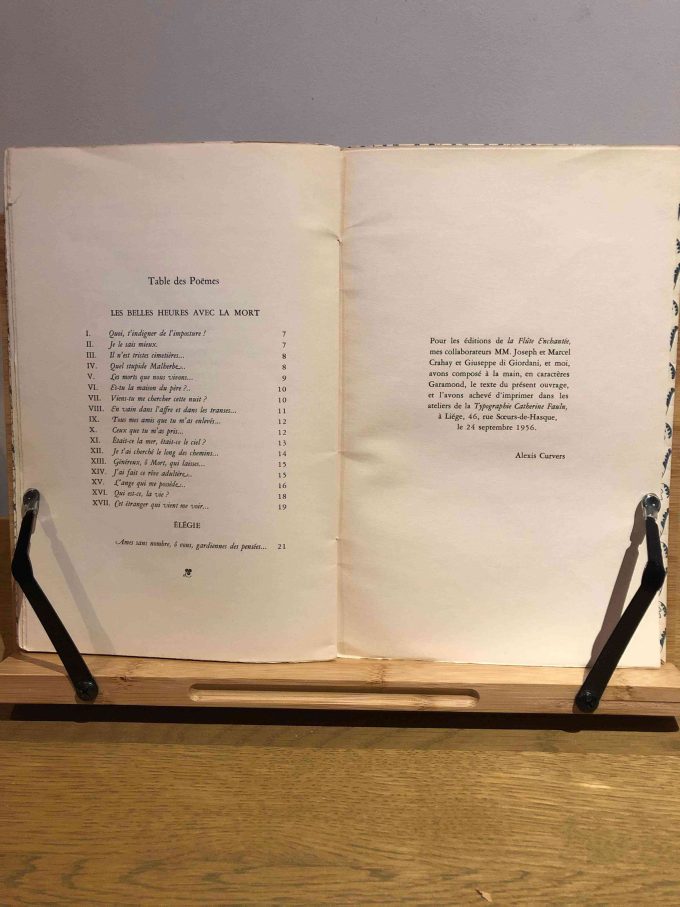 Table des Poëmes
LES BELLES HEURES AVEC LA MORT
I. Quoi, t'indigner de l'imposture ! 7
II. Je le sais mieux. 7
III. Il n'est tristes cimetières... 8
IV. Quel stupide Malherbe... 8
V. Les morts que nous vivons... 9
VI. Es-tu la maison du père ?.. 10
VII. Viens-tu me chercher cette nuit ? 10
VIII. En vain dans l'affre et dans les transes... 11
IX. Tous mes amis que tu m'as enlevés... 12
X. Ceux que tu m'as pris... 12
XI. Était-ce la mer, était-ce le ciel ? 13
XII. Je t'ai cherché le long des chemins... 14
XIII. Généreux, ô Mort, qui laisses... 15
XIV. J'ai fait ce rêve adultère... 15
XV. L'ange qui me possède... 16
XVI. Qui est-ce, la vie ? 18
XVII. Cet étranger qui vient me voir... 19
ÉLÉGIE
Ames sans nombre, ô vous, gardiennes des pensées... 21
Pour les éditions de la Flûte Enchantée,
mes collaborateurs MM. Joseph et Marcel
Crahay et Giuseppe di Giordani, et moi,
avons composé à la main, en caractères
Garamond, le texte du présent ouvrage,
et l'avons achevé d'imprimer dans les
ateliers de la Typographie Catherine Fauln,
à Liége, 46, rue Sœurs-de-Hasque,
le 24 septembre 1956.
Alexis Curvers